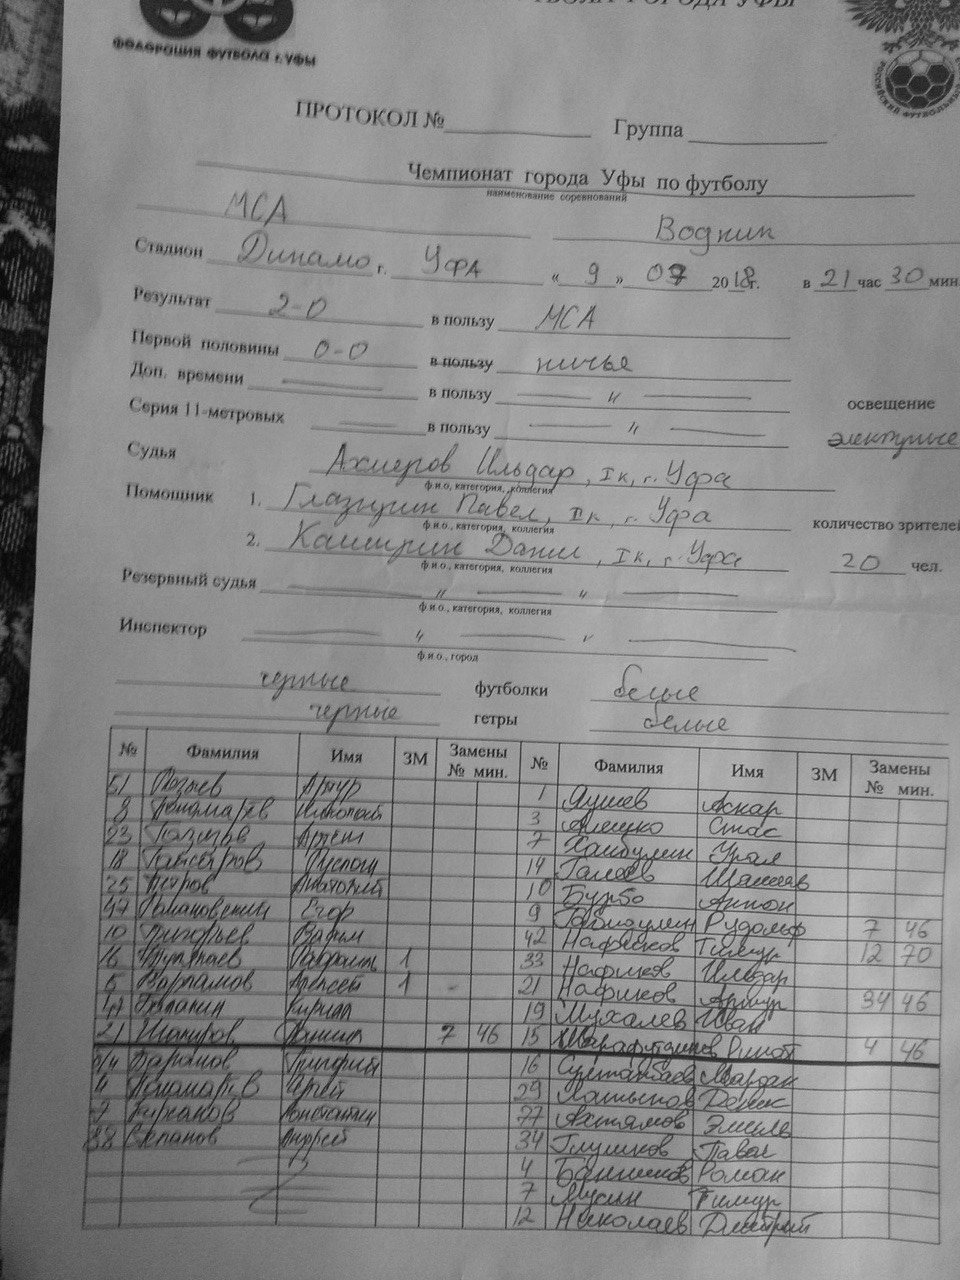 ФЕДЕРАЦИЯ ФУТБОЛА г. УФЫ
ГОРОДА УФЫ
РОССИЙСКИЙ ФУТБОЛЬНЫЙ
ПРОТОКОЛ № Группа
Чемпионат города Уфы по футболу
наименование соревнований
МСА Водник
Стадион Динамо г. Уфа « 9 » 07 2018г. в 21 час 30 мин.
Результат 2-0 в пользу МСА
Первой половины 0-0 в пользу ничья
Доп. времени в пользу
освещение
Серия 11-метровых в пользу
электрическое
Судья Ахмеров Ильдар, I к, г. Уфа
ф.и.о, категория, коллегия
Помощник 1. Павел, II к, г. Уфа
ф.и.о., категория, коллегия
количество зрителей
2. Каширин Данил, I к, г. Уфа
ф.и.о., категория, коллегия
20 чел.
Резервный судья
ф.и.о., категория, коллегия
Инспектор
ф.и.о., город
черные футболки белые
черные гетры белые
№ Фамилия Имя ЗМ Замены № мин. № Фамилия Имя ЗМ Замены № мин.
51 Артур 1 Яушев Аскар
8 Пономарев Николай 3 Стас
23 Артем 7 Хайбуллин Урал
18 Руслан 14 Галеев
25 Петров Анатолий 10 Антон
47 Романовский Егор 9 Рудольф 7 46
10 Григорьев Вадим 42 Нафиков Тимур 12 70
16 1 33 Нафиков Ильдар
5 Варламов Алексей 1 21 Нафиков Артур 34 46
Кирилл 19 Мухалев Иван
21 Шакиров Данил 7 46 15 Шарафутдинов Ринат 4 46
Баранов Григорий 16 Султанбаев Мардан
4 Пономарев 29 Латыпов Денис
7 Константин 77 Ахтямов Эмиль
88 Андрей 34 Глушков Павел
4 Банников Роман
7 Мусин Тимур
12 Николаев Дмитрий